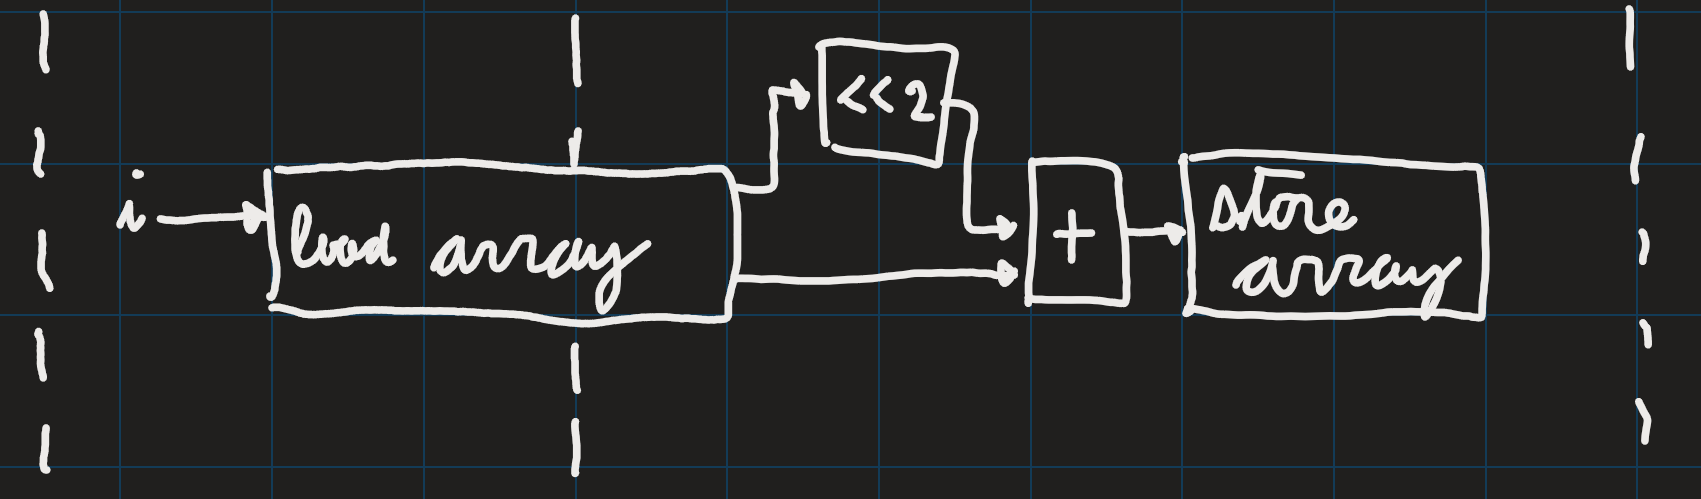 i
load array
<<2
+
store
array